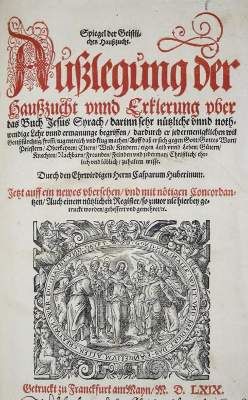 Spiegel der Geistli-
chen Haußzucht.
Außlegung der
Haußzucht vnnd Erklerung vber
das Buch Jesus Syrach / darinn sehr nützliche vnnd noth-
wendige Lehr vnnd ermanunge begriffen / dardurch er jedermenigklichen wil
Gottsförchtig / from̃ / tugentreich vnd klug machen / Auff daß er sich gegen Gott / Gottes Wort /
Priestern / Oberkeiten / Eltern / Weib / Kindern / eigen Leib vnnd Leben / Gütern /
Knechten / Nachbawrn / Freunden / Feinden vnd jederman / Christlich / ehr-
lich vnd löblich / zuhalten wisse.
Durch den Ehrwirdigen Herrn Casparum Huberinum.
Jetzt auff ein newes vbersehen / vnd mit nötigen Concordan-
tzen / Auch einem nützlichen Register / so zuuor nie hierbey ge-
truckt worden / gebessert vnd gemehret.
Getruckt zu Franckfurt am Mayn / M. D. LXIX.